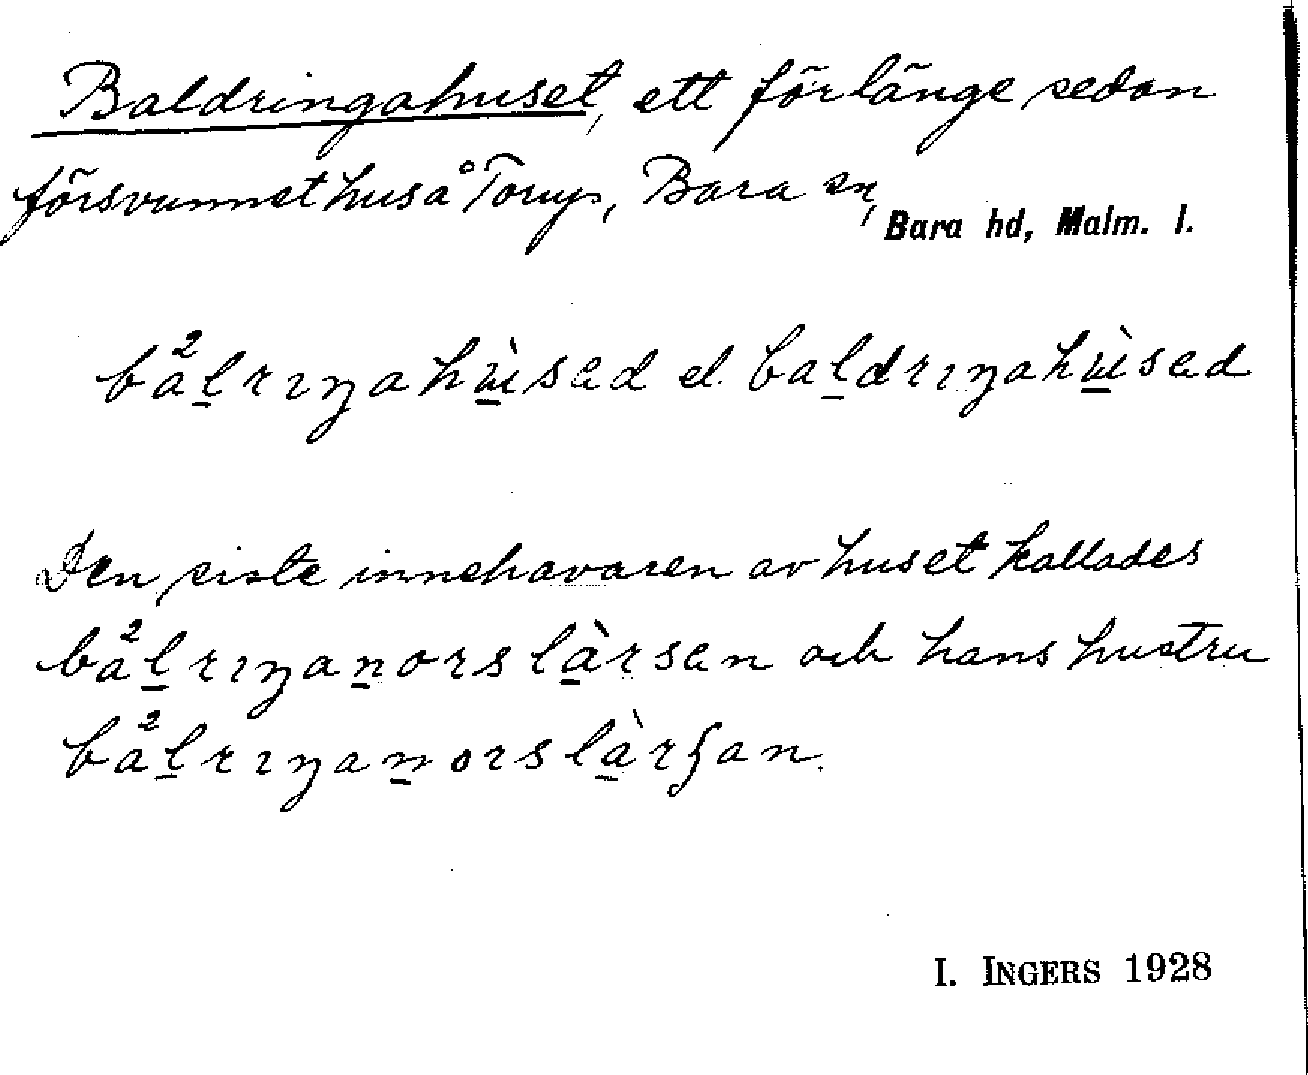 Baldringahuset, ett för länge sedan
försvunnet hus å Torup, Bara sn,
Bara hd, Malm. l.
bå²l̠rıŋahù̠sad el. bal̠drıŋahù̠sad
Den siste innehavaren av huset kallades
ba²l̠rıŋan̠orslà̠rsan och hans hustru
ba²l̠rıŋan̠orslà̠rʂan.
I. INGERS 1928